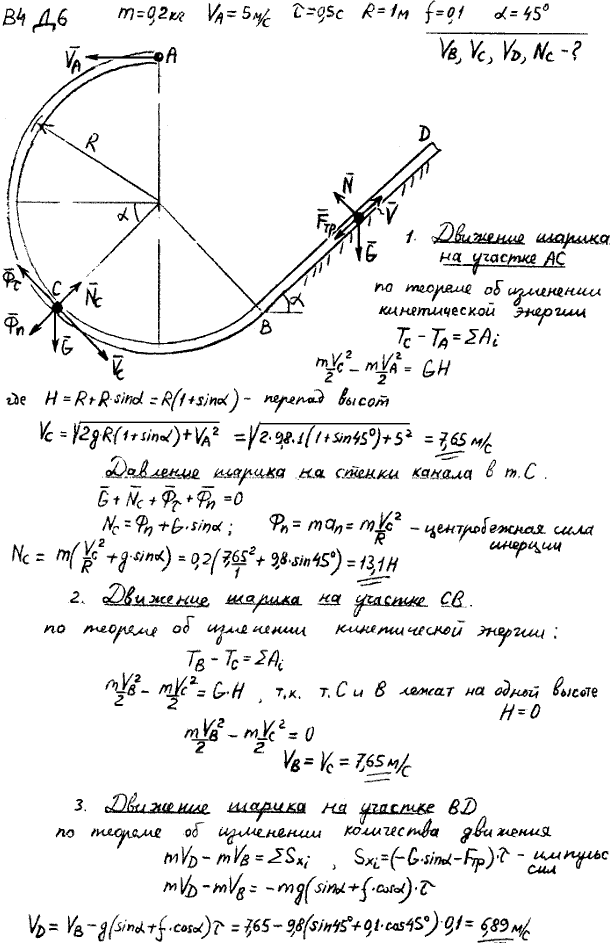 В4 Д6 m=0,2кг V_A=5м/с τ=0,5с R=1м f=0,1 α=45°
V_B, V_C, V_D, N_C-?
V̄_A
A
R
D
N̄
F̄_тр
V̄
Ḡ
α
C
Φ̄_τ
N̄_C
Φ̄_n
Ḡ
V̄_C
B
α
1. Движение шарика
на участке АС
по теореме об изменении
кинетической энергии
T_C - T_A = ΣA_i
mV_C²/2 - mV_A²/2 = GH
где H = R+R·sinα = R(1+sinα) - перепад высот
V_C = √(2gR(1+sinα)+V_A²) = √(2·9,8·1(1+sin45°)+5²) = 7,65 м/с
Давление шарика на стенки канала в т.С.
Ḡ+N̄_C+Φ̄_τ+Φ̄_n=0
N_C = Φ_n+G·sinα; Φ_n = ma_n = mV_C²/R - центробежная сила
инерции
N_C = m(V_C²/R + g·sinα) = 0,2(7,65²/1 + 9,8·sin45°) = 13,1Н
2. Движение шарика на участке СВ.
по теореме об изменении кинетической энергии:
T_B - T_C = ΣA_i
mV_B²/2 - mV_C²/2 = G·H, т.к. т.С и В лежат на одной высоте
H=0
mV_B²/2 - mV_C²/2 = 0
V_B = V_C = 7,65 м/с
3. Движение шарика на участке BD
по теореме об изменении количества движения
mV_D - mV_B = ΣS_xi, S_xi=(-G·sinα-F_тр)·τ - импульс
сил
mV_D - mV_B = -mg(sinα+f·cosα)·τ
V_D = V_B - g(sinα+f·cosα)τ = 7,65 - 9,8(sin45°+0,1·cos45°)·0,1 = 6,89 м/с